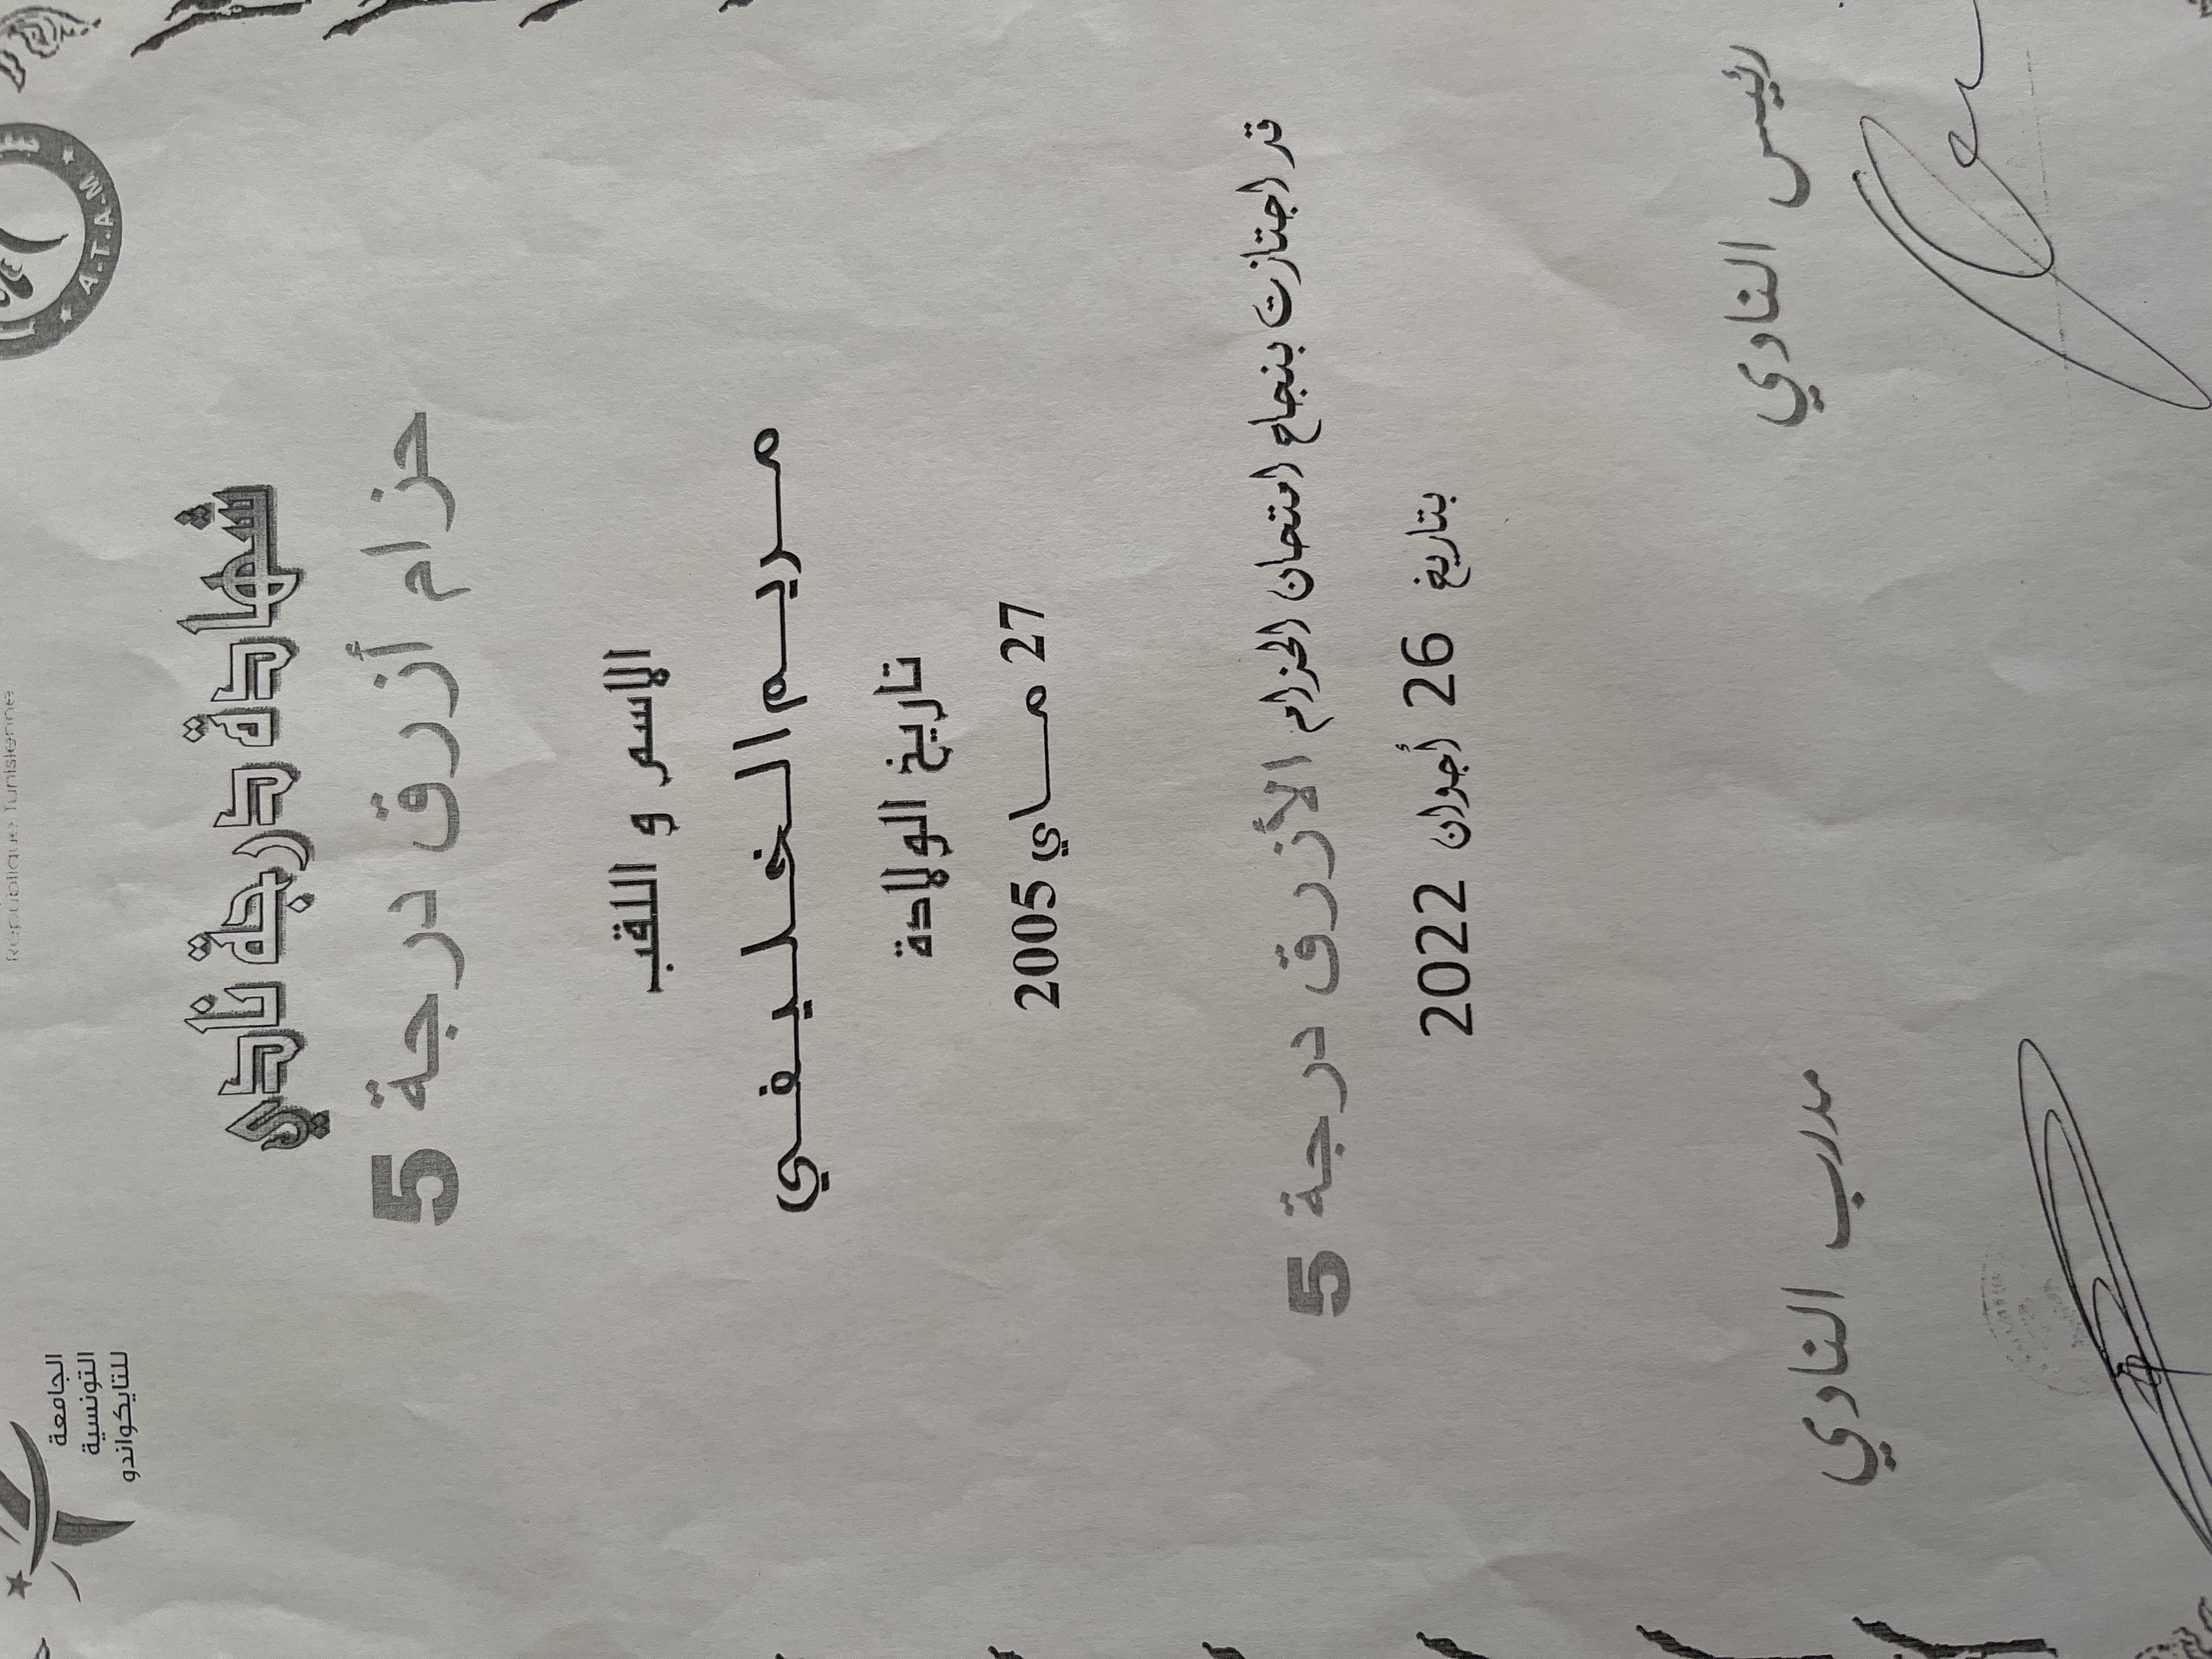 République Tunisienne
A.T.A.M
الجامعة
التونسية
للتايكواندو
شهادة درجة نادي
حزام أزرق درجة 5
الاسم و اللقب
مريم الخليفي
تاريخ الولادة
27 ماي 2005
قد اجتازت بنجاح امتحان الحزام الأزرق درجة 5
بتاريخ 26 أجوان 2022
رئيس النادي
مدرب النادي